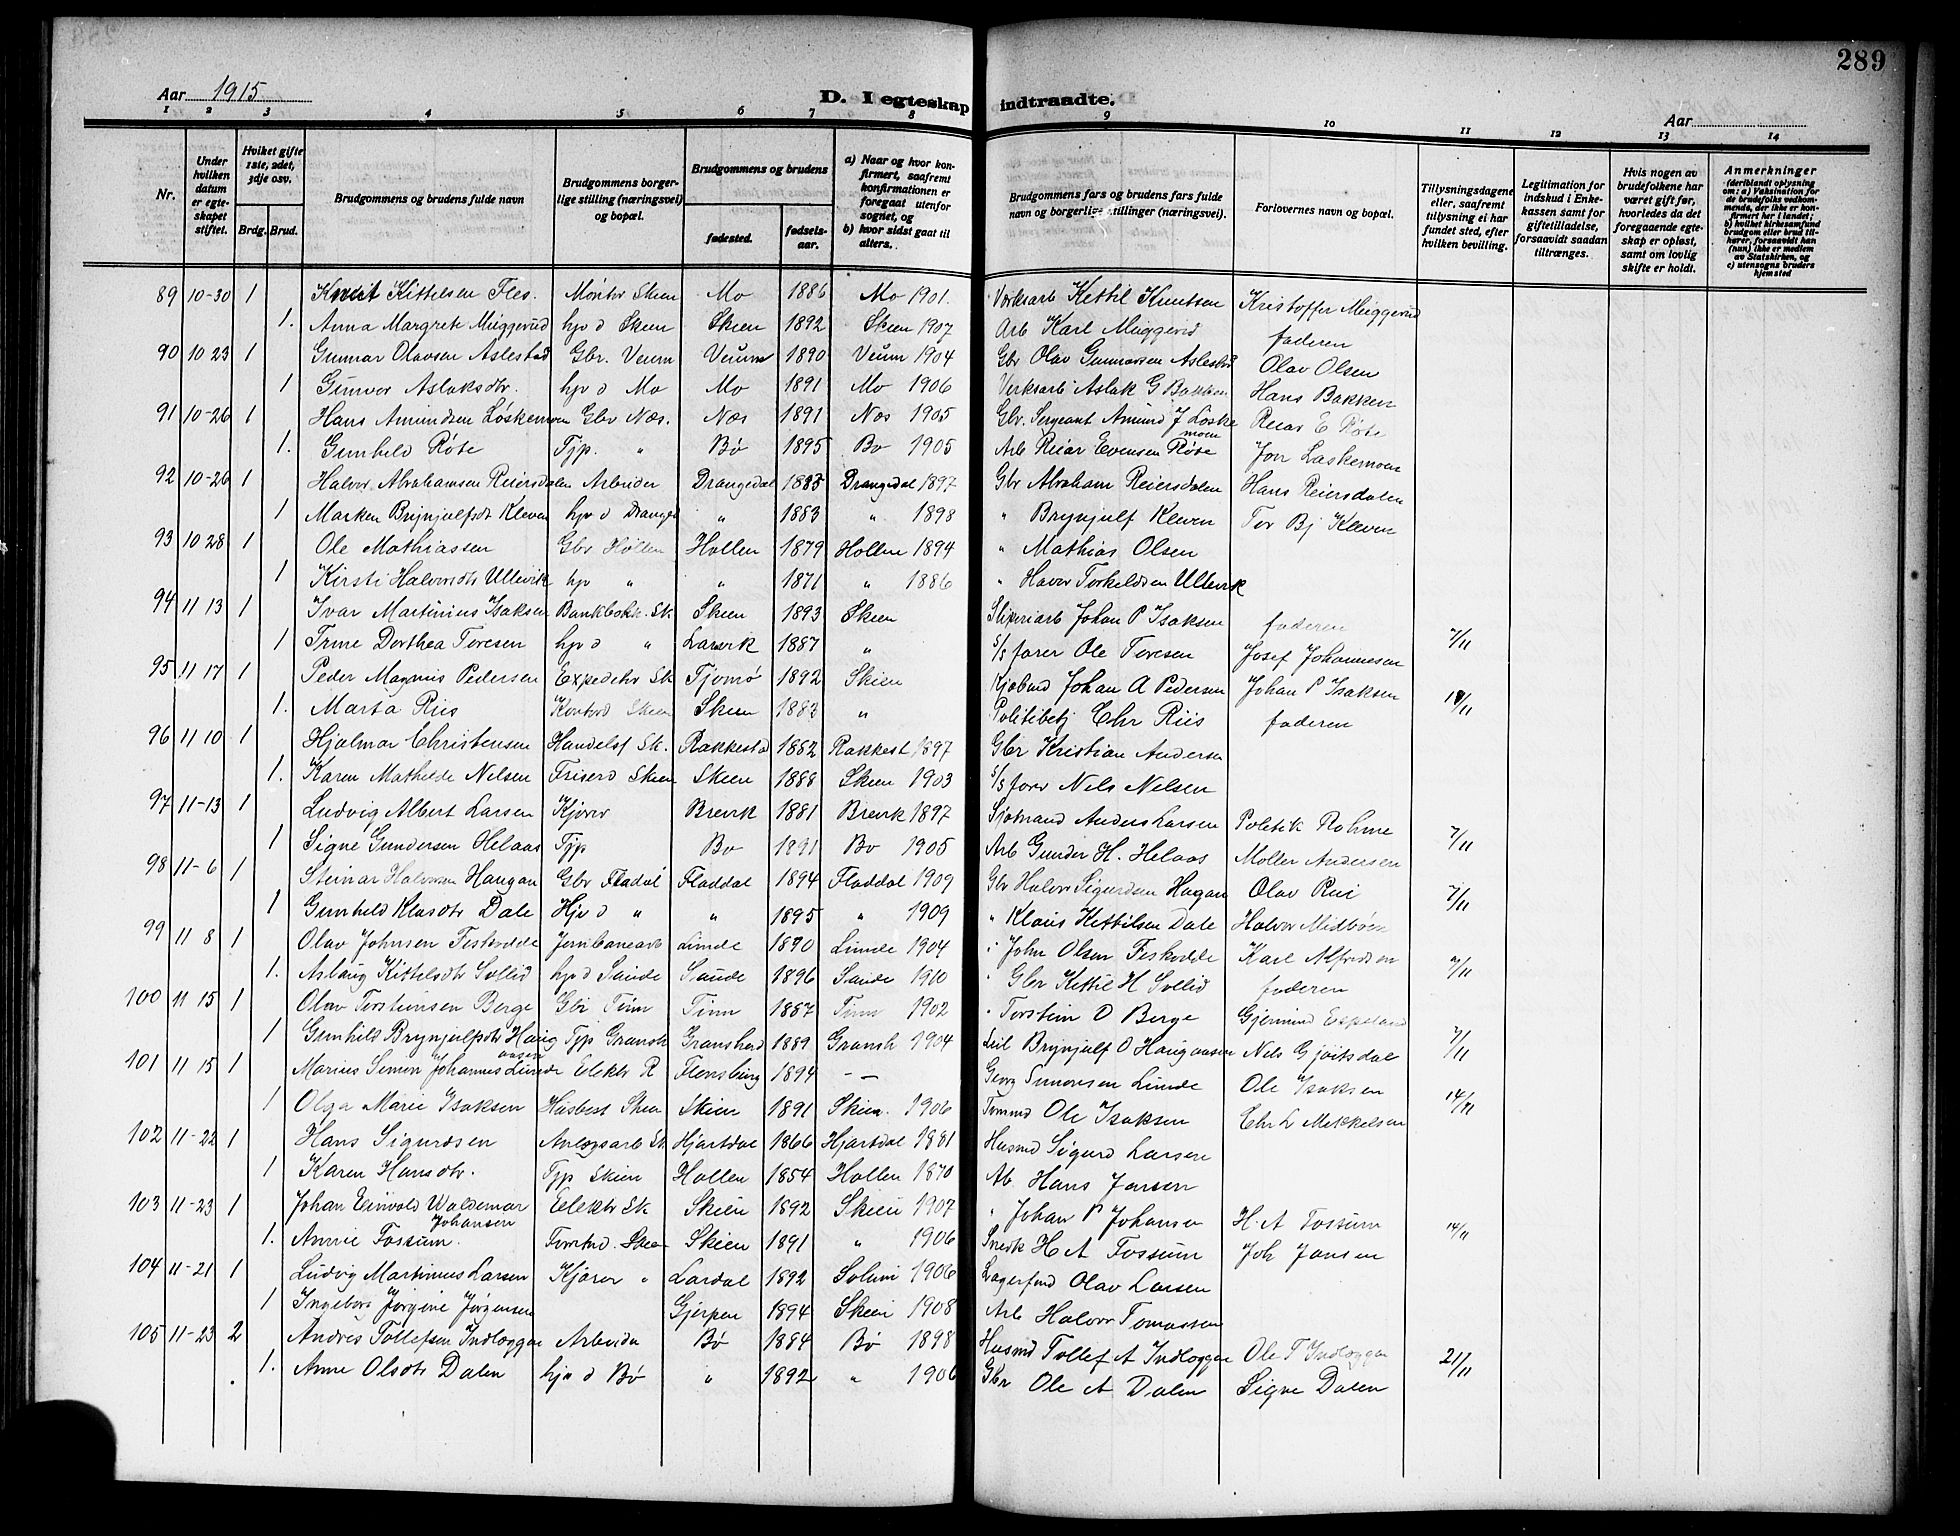 289
Aar 1915
D. I egteskap indtraadte.
Aar
1 2 3 4 5 6 7 8 9 10 11 12 13 14
Nr.
Under hvilken datum er egteskapet stiftet.
Hvilket gifte 1ste, 2det, 3dje osv.
Brdg. Brud.
Brudgommens og brudens fulde navn
Brudgommens borgerlige stilling (næringsvei) og bopæl.
Brudgommens og brudens
fødested.
fødselsaar.
a) Naar og hvor konfirmert, saafremt konfirmationen er foregaat utenfor sognet, og
b) hvor sidst gaat til alters.
Brudgommens fars og brudens fars fulde navn og borgerlige stillinger (næringsvei).
Forlovernes navn og bopæl.
Tillysningsdagene eller, saafremt tillysning ei har fundet sted, efter hvilken bevilling.
Legitimation for indskud i Enkekassen samt for giftetilladelse, forsaavidt saadan tiltrænges.
Hvis nogen av brudefolkene har været gift før, hvorledes da det foregaaende egteskap er opløst, samt om lovlig skifte er holdt.
Anmerkninger (deriblandt oplysning om: a) Vaksination for de brudefolks vedkommende, der ikke er konfirmert her i landet; b) hvilket kirkesamfund brudgom eller brud tilhører, forsaavidt han (hun) ikke er medlem av Statskirken, og c) utensogns bruders hjemsted
89 10-30 1 Knut Kittelsen Fles. Montør Skien Mo 1886 Mo 1901. Verksarb Kettil Knutsen Kristoffer Muggerud
1. Anna Margrete Muggerud hjv d Skien Skien 1892 Skien 1907 Arb Karl Muggerud faderen
90 10 23 1 Gunnar Olavsen Aslestad Gbr. Veum Veum 1890 Veum 1904 Gbr Olav Gunnarsen Aslestad Olav Olsen
1 Gunvor Aslaksdtr. hjv d Mo Mo 1891 Mo 1906 Verksarb Aslak G Bakken Hans Bakken
91 10-26 1 Hans Amundsen Løskemoen Gbr Næs. Næs 1891 Næs 1905 Gbr. Sergeant Amund J Løskemoen Reiar E Røte
1. Gunhild Røte Tjp. " Bø 1895 Bø 1905 Arb Reiar Evensen Røte Jon Laskemoen
92 10-26 1 Halvor Abrahamsen Reiersdalen Arbeider Drangedal 1883 Drangedal 1897 Gbr Abraham Reiersdalen Hans Reiersdalen
1 Marken Brynjulfsdt Kleven hjv d Dranged " 1883 " 1898 " Brynjulf Kleven Tor Bj Kleven
93 10 28 1 Ole Mathiassen Gbr Hollen Hollen 1879 Hollen 1894 " Mathias Olsen
1 Kirsti Halvorsdtr Ullevik hjv " " 1871 " 1886 " Havor Torkeldsen Ullevik
94 11 13 1 Ivar Martinius Isaksen Bankbokh. Sk. Skien 1893 Skien Sliperiarb Johan P Isaksen faderen
1 Trine Dorthea Toresen hjv d " Larvik 1887 " S/s fører Ole Toresen Josef Johannesen 7/11
95 11 17 1 Peder Magnus Pedersen Expeditør Sk Tjømø 1892 Skien Kjøbmd Johan A Pedersen Johan P Isaksen
1. Marta Riis Kontord Skien Skien 1883 " Politibetj Chr Riis faderen
96 11 10 1 Hjalmar Christensen Handelsf Sk. Rakkestd 1882 Rakkest 1897 Gbr Kristian Andersen
1. Karen Mathilde Nelsen Friserd Skien Skien 1888 Skien 1903 S/s fører Nels Nelsen
97 11-13 1 Ludvig Albert Larsen Kjører Brevik 1881 Brevik 1897 Sjømand Anders Larsen Politik Rohme
1 Signe Gundersen Helaas Tjp Bø 1891 Bø 1905 Arb Gunder H. Helaas Møller Andersen 7/11
98 11-6 1 Steinar Halvorsen Haugan Gbr Fladdal Fladdal 1894 Fladdal 1909 Gbr Halvor Sigurdsen Hagan Olav Rui
1 Gunhild Klasdtr Dale Hjv d " " 1895 " 1909 " Klaus Kettilsen Dale Halvor Midtbøen 7/11
99 11 8 1 Olav Johnsen Feskodde Jernbanearb Lunde 1890 Lunde 1904 " John Olsen Feskodde Karl Alfredsen
1. Aslaug Kittelsdtr Sollid hjv d Saude Saude 1896 Saude 1910 " Gbr Kettil H Sollid faderen 7/11
100 11 15 1 Olav Torsteinsen Berge Gbr Tinn Tinn 1887 Tinn 1902 " Torstein O Berge Gjermund Espeland
1 Gunhild Brynjulfsdtr Haugaasen Tjp Gransh Gransherd 1889 Gransh 1904 Brynjulf O Haugaasen Nels Gjøitsdal 7/11
101 11 15 1 Marius Simon Johannes Lunde Elektr R Flensburg 1894 — — Georg Simonsen Lunde Ole Isaksen
1 Olga Marie Isaksen Husbest Skien Skien 1891 Skien. 1906 Tømmd Ole Isaksen Chr L Mikkelsen 14/11
102 11-22 1 Hans Sigurdsen Anlægsarb Sk. Hjartdal 1866 Hjartdal 1881 Husmd Sigurd Larsen
1 Karen Hansdtr. Tjp Skien Hollen 1854 Hollen 1870 Ab. Hans Jansen
103 11-23 1 Johan Einvold Waldemar Johansen Elektr Sk Skien 1892 Skien 1907 " Johan P Johansen H. A Fossum
1. Annie Fossum. Skien 1891 " 1906 Snedk H A Fossum Joh Jansen 14/11
104 11-21 1 Ludvig Martinius Larsen Kjører " Lardal 1892 Solum 1906 Lagerfmd Olav Larsen
1 Ingeborg Jørgine Jørgensen Gjerpen 1894 Skien 1908 Arb Halvor Tomassen
105 11-23 2 Andres Tollefsen Indlæggen Arbeider Bø 1884 Bø 1898 Husmd Tollef A Indlæggen Ole T Indlæggen
1. Anne Olsdtr Dalen hjv d Bø " 1892 " 1906 Gbr Ole A Dalen Signe Dalen 21/11